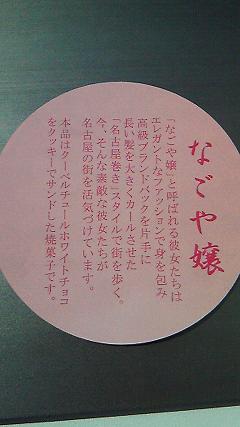 なごや嬢
「なごや嬢」と呼ばれる彼女たちは
エレガントなファッションで身を包み
高級ブランドバックを片手に
長い髪を大きくカールさせた
「名古屋巻き」スタイルで街を歩く。
今、そんな素敵な彼女たちが
名古屋の街を活気づけています。
本品はクーベルチュールホワイトチョコ
をクッキーでサンドした焼菓子です。